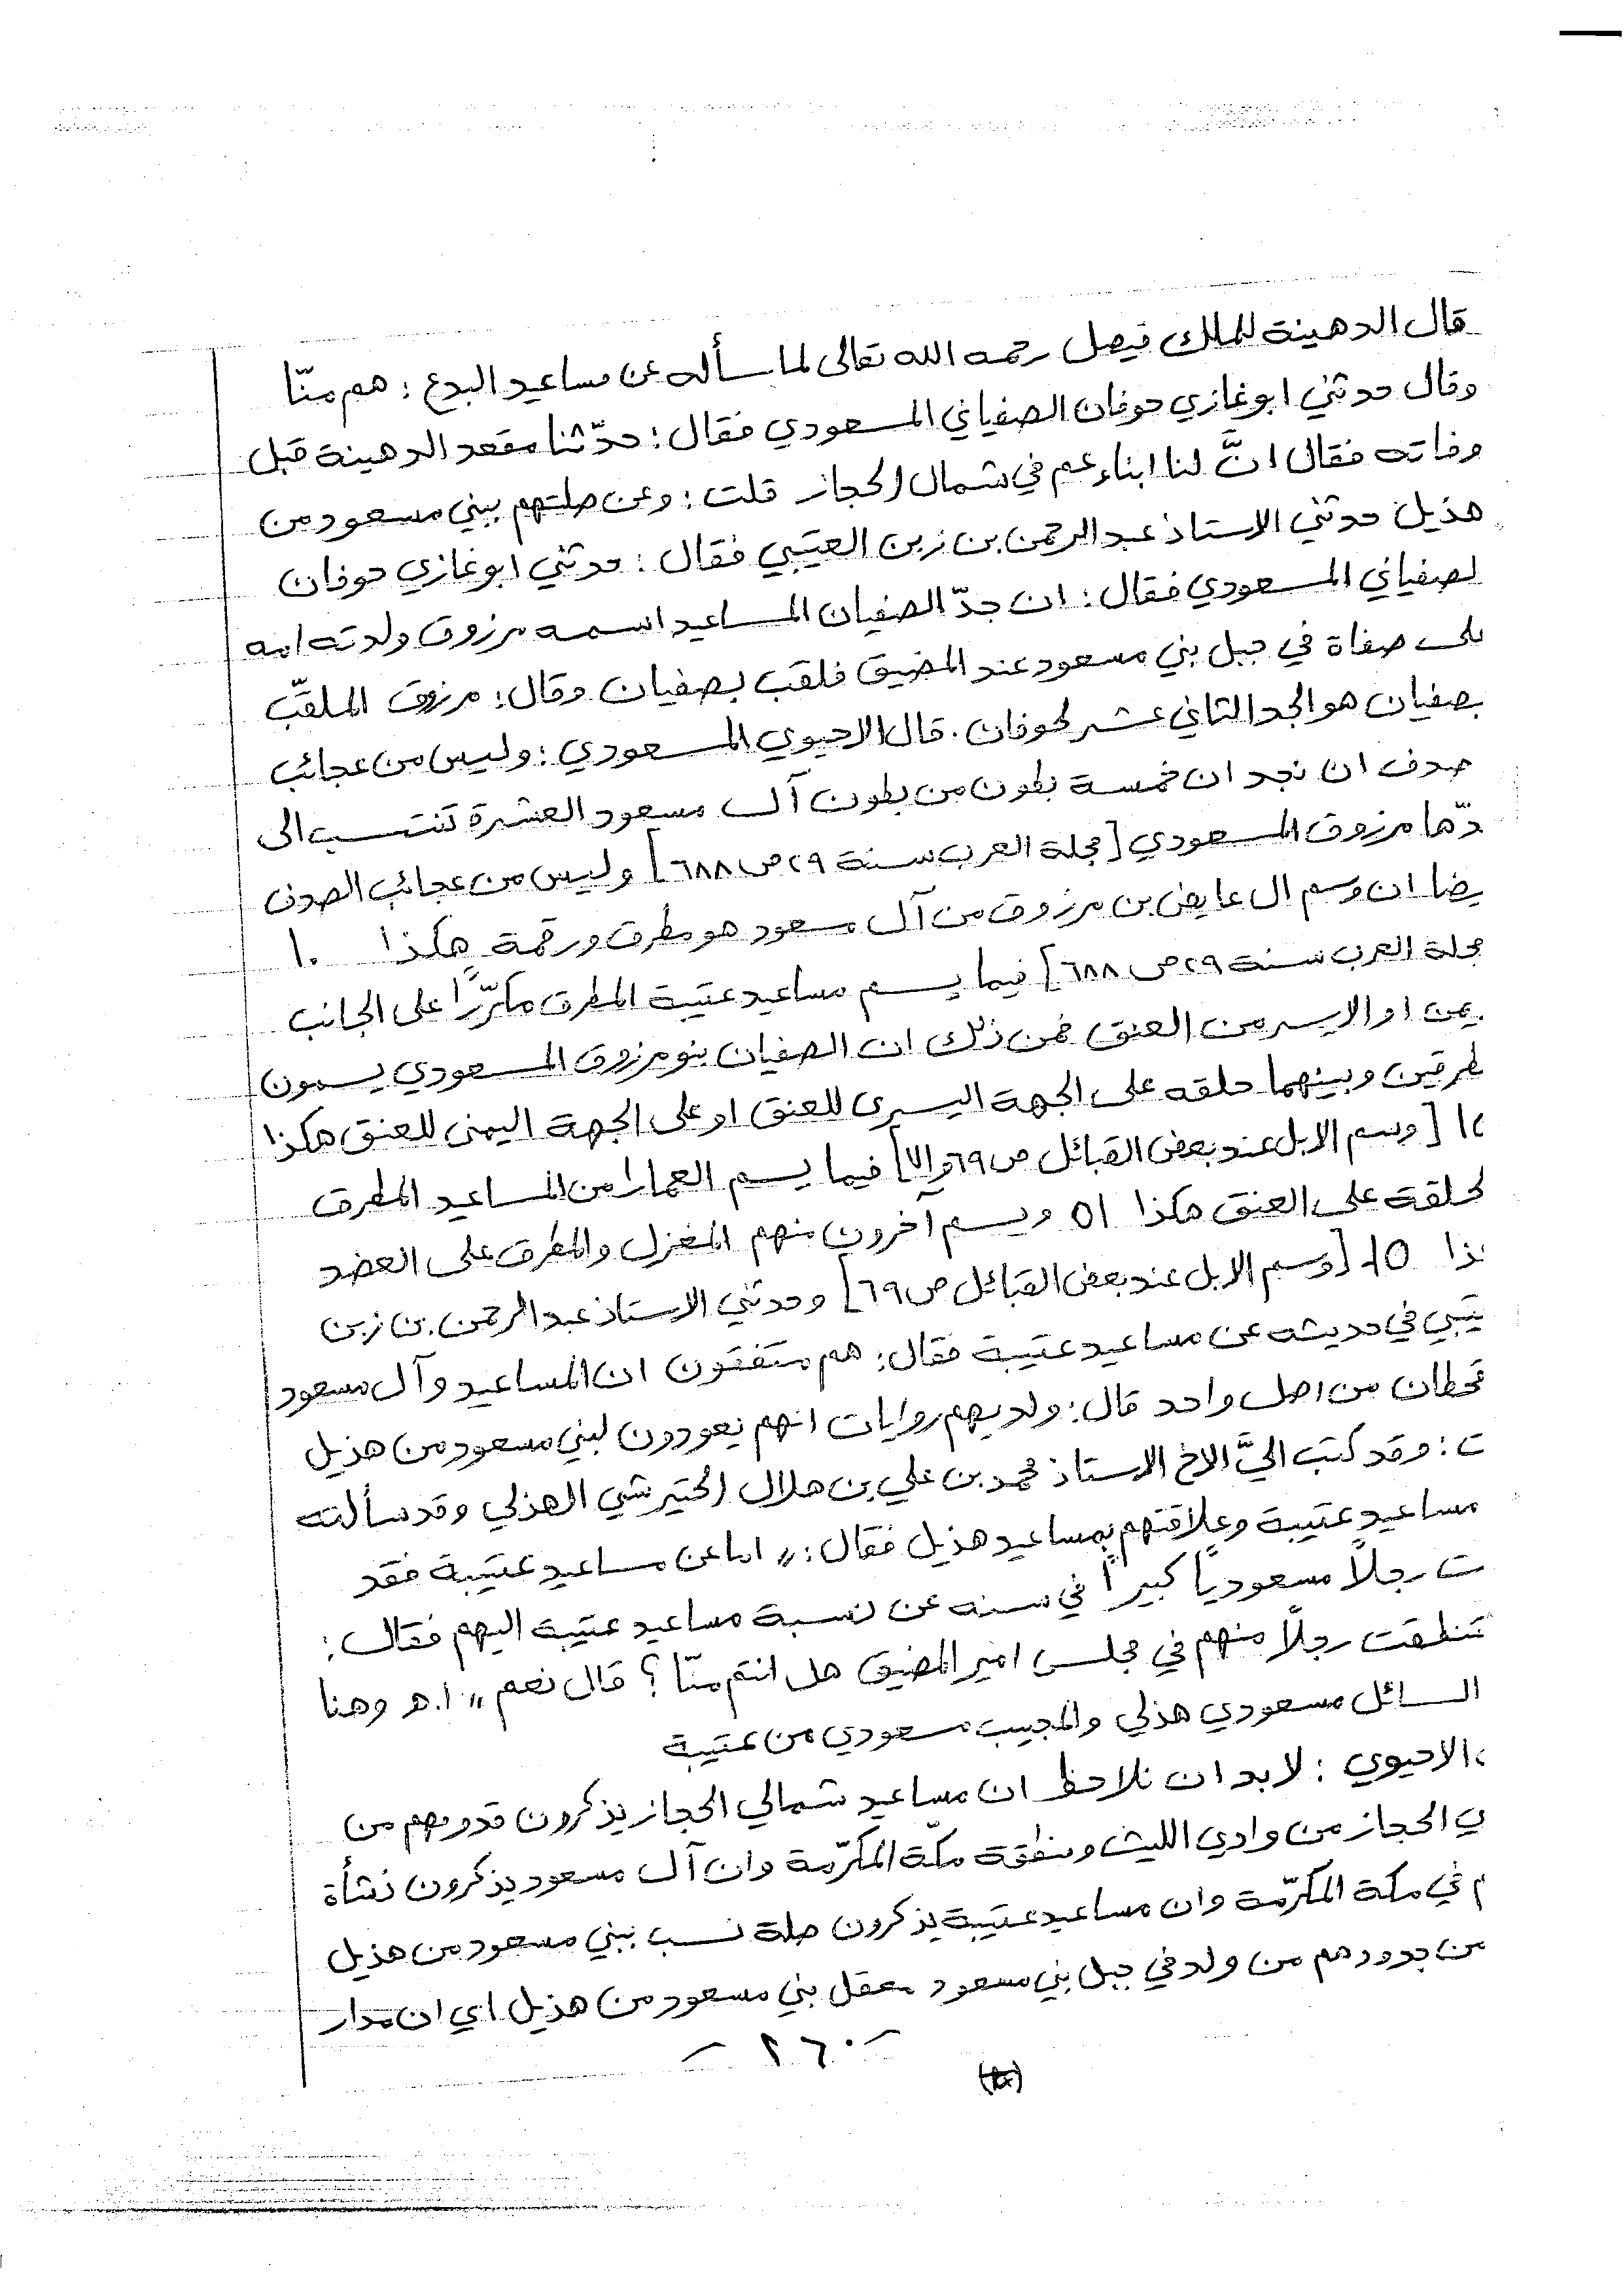 قال الدهينة للملك فيصل رحمه الله تعالى لما سأله عن مساعيد البدع : هم منّا
وقال حدثني ابو غازي حوفان الصفياني المسعودي فقال : حدّثنا مقعد الدهينة قبل
وفاته فقال انَّ لنا ابناء عم في شمال الحجاز قلت : وعن صلتهم ببني مسعود من
هذيل حدثني الاستاذ عبد الرحمن بن زبن العتيبي فقال : حدثني ابو غازي حوفان
لصفياني المسعودي فقال : ان جدّ الصفيان المساعيد اسمه مرزوق ولدته امه
لى صفاة في جبل بني مسعود عند المضيق فلقب بصفيان وقال : مرزوق الملقّب
بصفيان هو الجد الثاني عشر لحوفان . قال الاحيوي المسعودي : وليس من عجائب
صدف ان نجد ان خمسة بطون من بطون آل مسعود العشرة تنتسب الى
دّها مرزوق المسعودي [ مجلة العرب سنة ٢٩ ص ٦٨٨ ] وليس من عجائب الصدف
يضا ان وسم ال عايض بن مرزوق من آل مسعود هو مطرق ورقمة هكذا ١٠
مجلة العرب سنة ٢٩ ص ٦٨٨ ] فيما يسم مساعيد عتيبة المطرق مكرّرًا على الجانب
يمن او الايسر من العنق فمن ذلك ان الصفيان بنو مرزوق المسعودي يسمون
طرقين وبينهما حلقه على الجهة اليسرى للعنق او على الجهة اليمنى للعنق هكذا
[ وسم الابل عند بعض القبائل ص ٦٩ فيما يسم العمارا من المساعيد المطرق
لحلقة على العنق هكذا ا٥ ويسم آخرون منهم المغزل والمطرق على العضد
ذا [ وسم الابل عند بعض القبائل ص ٦٩ ] وحدثني الاستاذ عبد الرحمن بن زبن
يتيبي في حديثه عن مساعيد عتيبة فقال : هم متفقون ان المساعيد وآل مسعود
قحطان من اصل واحد قال : ولديهم روايات انهم يعودون لبني مسعود من هذيل
ت : وقد كتب اليَّ الاخ الاستاذ محمد بن علي بن هلال الحتيرشي الهذلي وقد سألته
مساعيد عتيبة وعلاقتهم بمساعيد هذيل فقال : " اما عن مساعيد عتيبة فقد
ت رجلاً مسعودياً كبيراً في سنه عن نسبة مساعيد عتيبة اليهم فقال :
تنطقت رجلاً منهم في مجلس امير المضيق هل انتم منّا ؟ قال نعم " ا.هـ وهنا
السائل مسعودي هذلي والمجيب مسعودي من عتيبة
الاحيوي : لابد ان نلاحظ ان مساعيد شمالي الحجاز يذكرون قدومهم من
ي الحجاز من وادي الليث ومنطقة مكّة المكرّمة وان آل مسعود يذكرون نشأة
م في مكة المكرّمة وان مساعيد عتيبة يذكرون صلة نسب ببني مسعود من هذيل
من جدودهم من ولد في جبل بني مسعود معقل بني مسعود من هذيل اي ان مدار
- ٢٦٠ -